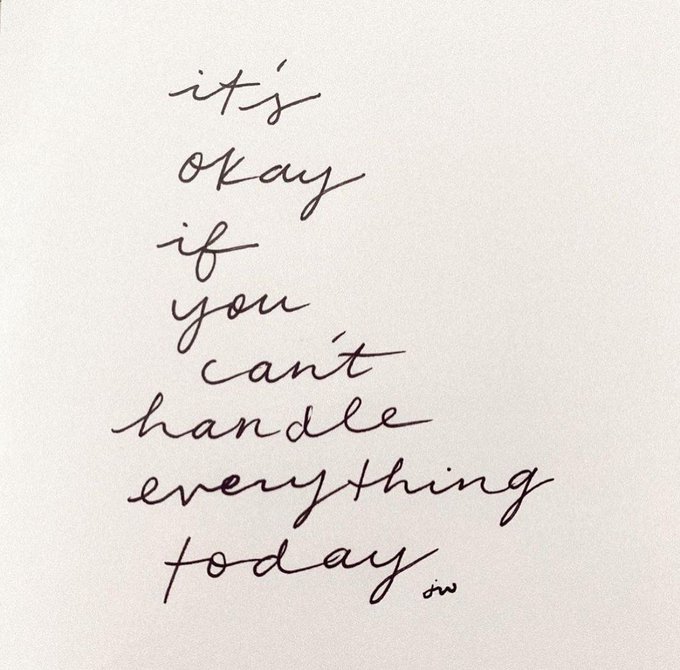 it's
okay
if
you
can't
handle
everything
today
jw